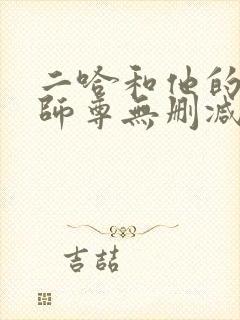 二哈和他的
師尊無刪減
吉喆